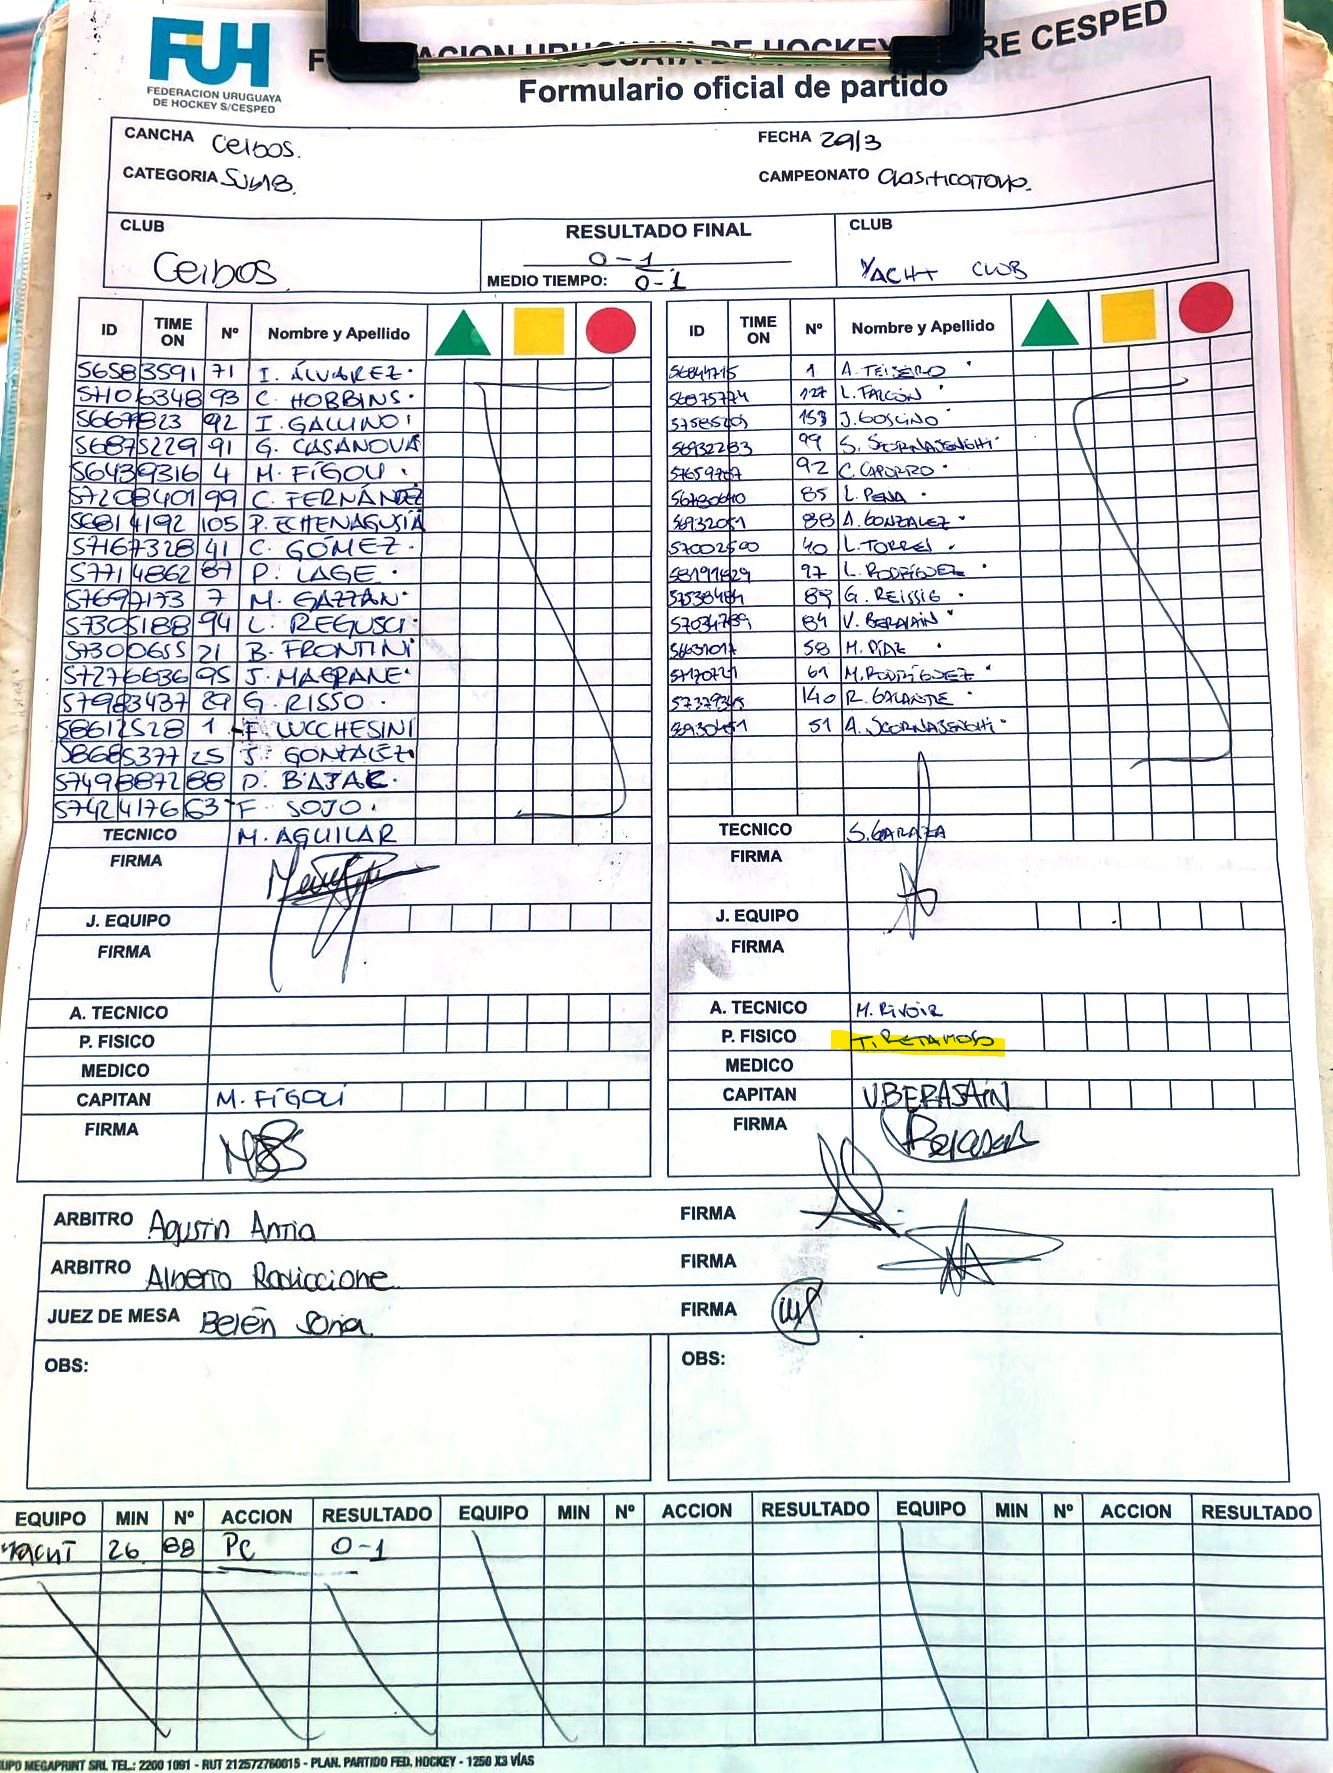 FUH
FEDERACION URUGUAYA
DE HOCKEY S/CESPED
FEDERACION URUGUAYA DE HOCKEY SOBRE CESPED
Formulario oficial de partido
CANCHA Ceibos.
FECHA 29/3
CATEGORIA Sub18.
CAMPEONATO Clasificatorio.
CLUB
Ceibos.
RESULTADO FINAL
0-1
MEDIO TIEMPO: 0-1
CLUB
YACHT CLUB
ID TIME ON Nº Nombre y Apellido
56583591 71 I. ÁLVAREZ.
57106348 93 C. HOBBINS.
5667823 92 I. GALLINO
56875229 91 G. CASANOVA
56439316 4 M. FÍGOLI.
57208401 99 C. FERNÁNDEZ
56814192 105 P. ECHENAGUSIA
57167328 41 C. GÓMEZ.
57714862 87 P. LAGE.
57697173 7 M. GAZZÁN.
57305188 94 L. REGUSCI.
57300655 21 B. FRONTINI
57276636 95 J. MAGRANE.
57983437 29 G. RISSO
58612528 1 F. LUCCHESINI
58685377 25 J. GONZALEZ.
57498872 88 D. BAJAC.
57424176 63 F. SOJO.
TECNICO M. AGUILAR
FIRMA
J. EQUIPO
FIRMA
A. TECNICO
P. FISICO
MEDICO
CAPITAN M. FÍGOLI
FIRMA
ID TIME ON Nº Nombre y Apellido
1 A. TEIXEIRO
L. FALCON
153 J. GOSCINO
99 S. SCORNAJENGHI
92 C. CAPURRO
85 L. PENA
56932051 88 A. GONZALEZ
57002500 40 L. TORRES
58191829 97 L. RODRÍGUEZ
G. REISSIG
57034789 84 V. BERASAIN
56631017 58 M. DÍAZ
61 M. RODRÍGUEZ
140 R. GALANTE
51 A. SCORNAJENGHI
TECNICO S. GARAZA
FIRMA
J. EQUIPO
FIRMA
A. TECNICO M. RIVOIR
P. FISICO T. RETAMOSO
MEDICO
CAPITAN V. BERASAIN
FIRMA Berasain
ARBITRO Agustin Antia FIRMA
ARBITRO Alberto Radiccione FIRMA
JUEZ DE MESA Belén Soria FIRMA
OBS:
OBS:
EQUIPO MIN Nº ACCION RESULTADO EQUIPO MIN Nº ACCION RESULTADO EQUIPO MIN Nº ACCION RESULTADO
YACHT 26 88 PC 0-1
UPO MEGAPRINT SRL TEL.: 2200 1091 - RUT 212572760015 - PLAN. PARTIDO FED. HOCKEY - 1250 X3 VÍAS